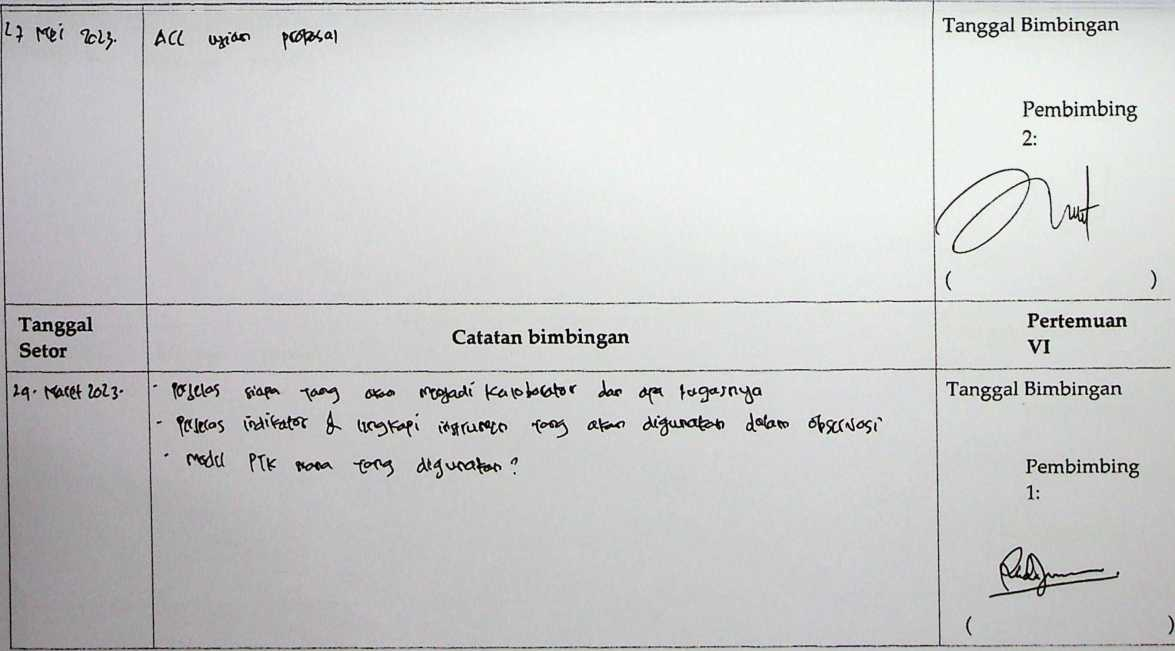 27 Mei 2023.
ACC ujian proposal
Tanggal Bimbingan
Pembimbing
2:
( )
Tanggal
Setor
Catatan bimbingan
Pertemuan
VI
29. Maret 2023.
- Perjelas siapa yang akan menjadi Kaloborator dan apa tugasnya
- Perjelas indikator & lengkapi instrumen yang akan digunakan dalam observasi
- model PTK mana yang digunakan?
Tanggal Bimbingan
Pembimbing
1:
( )